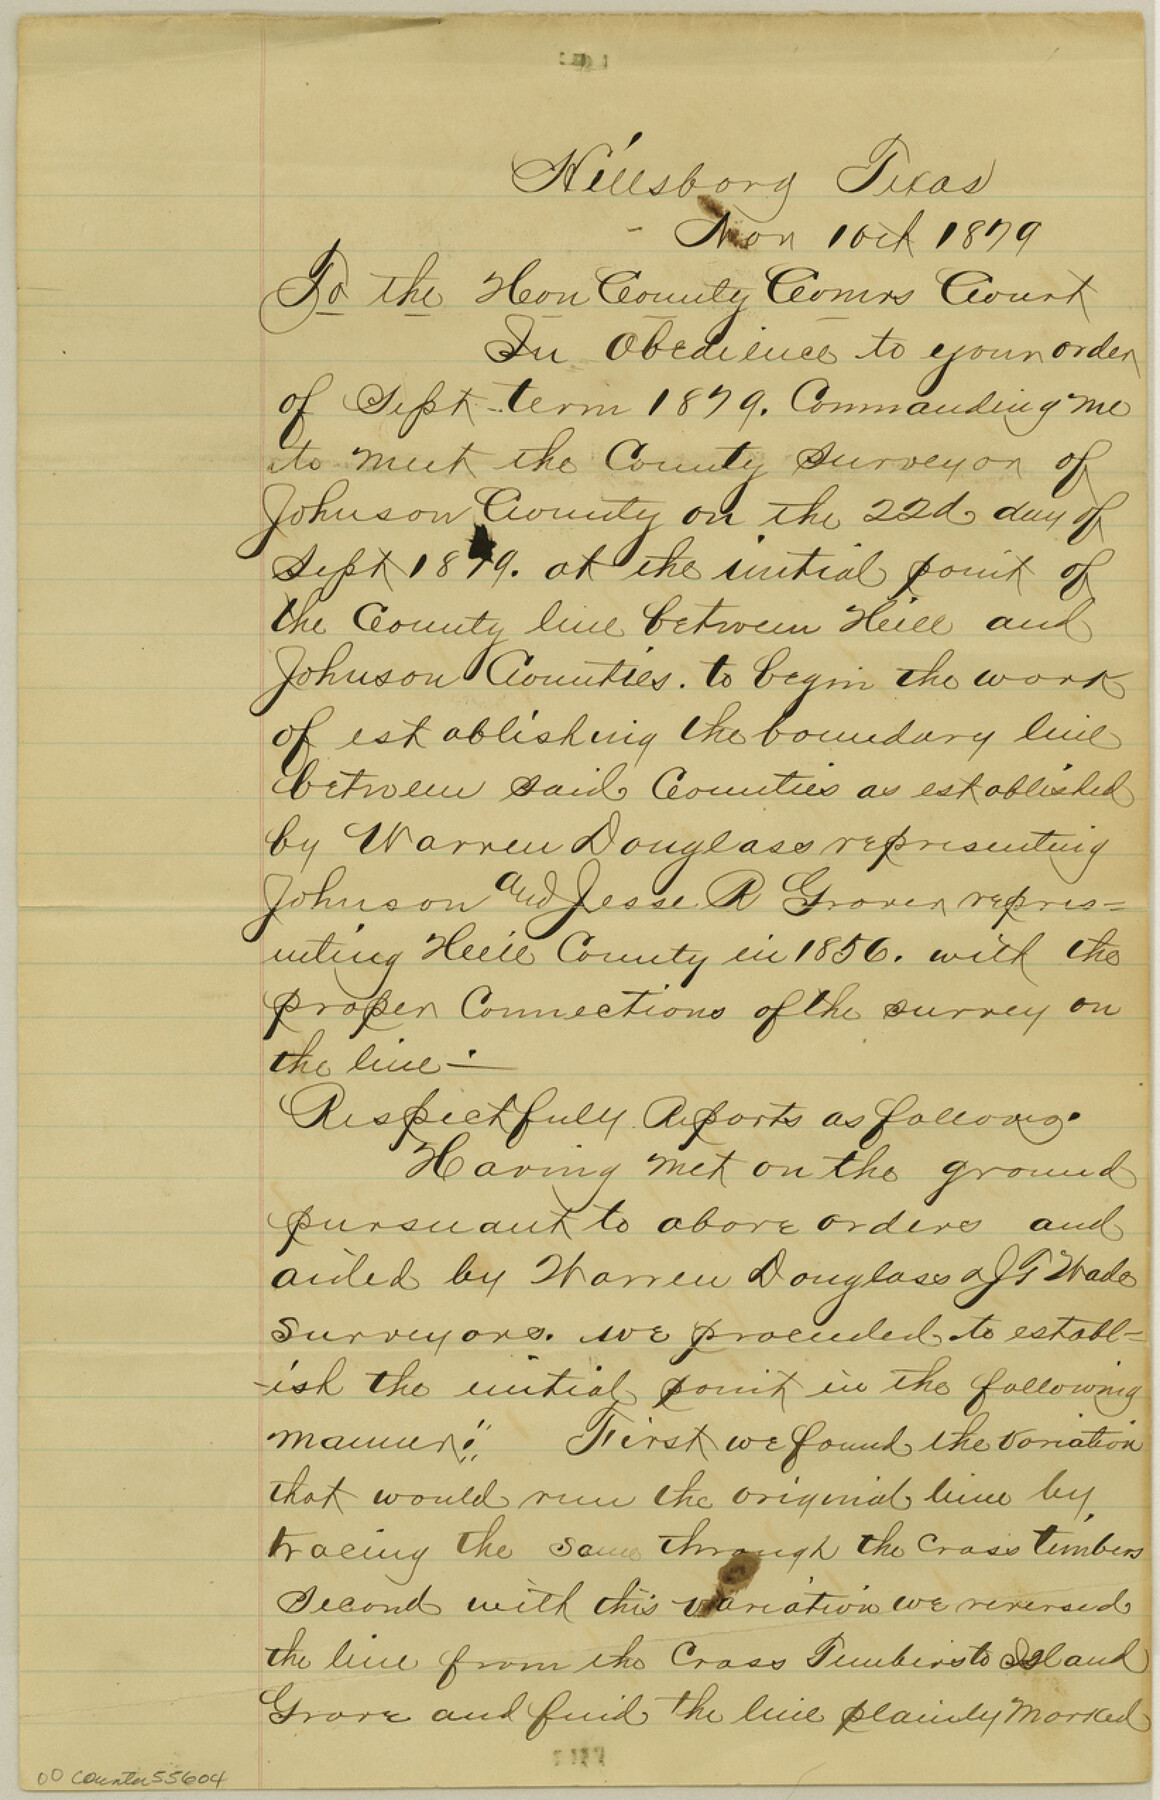 Hillsborg Texas
Nov 10th 1879
To the Hon County Comrs Court
In Obedience to your order
of Sept. term 1879. Commanding me
to meet the County Surveyor of
Johnson County on the 22d day of
Sept 1879. at the initial point of
the County line between Hill and
Johnson Counties. to begin the work
of establishing the boundary line
between said Counties as established
by Warren Douglass representing
Johnson and Jesse R Grover repres=
enting Hill County in 1856. with the
proper Connections of the survey on
the line—
Respectfully Reports as following.
Having met on the ground
pursuant to above orders and
aided by Warren Douglass & J T Wade
Surveyors. we proceeded to establ=
-ish the initial point in the following
manner: First we found the variation
that would run the original line by
tracing the same through the Cross timbers
Second with this variation we reversed
the line from the Cross Timbers to Island
Grove and find the line plainly marked
00 Counter 55604